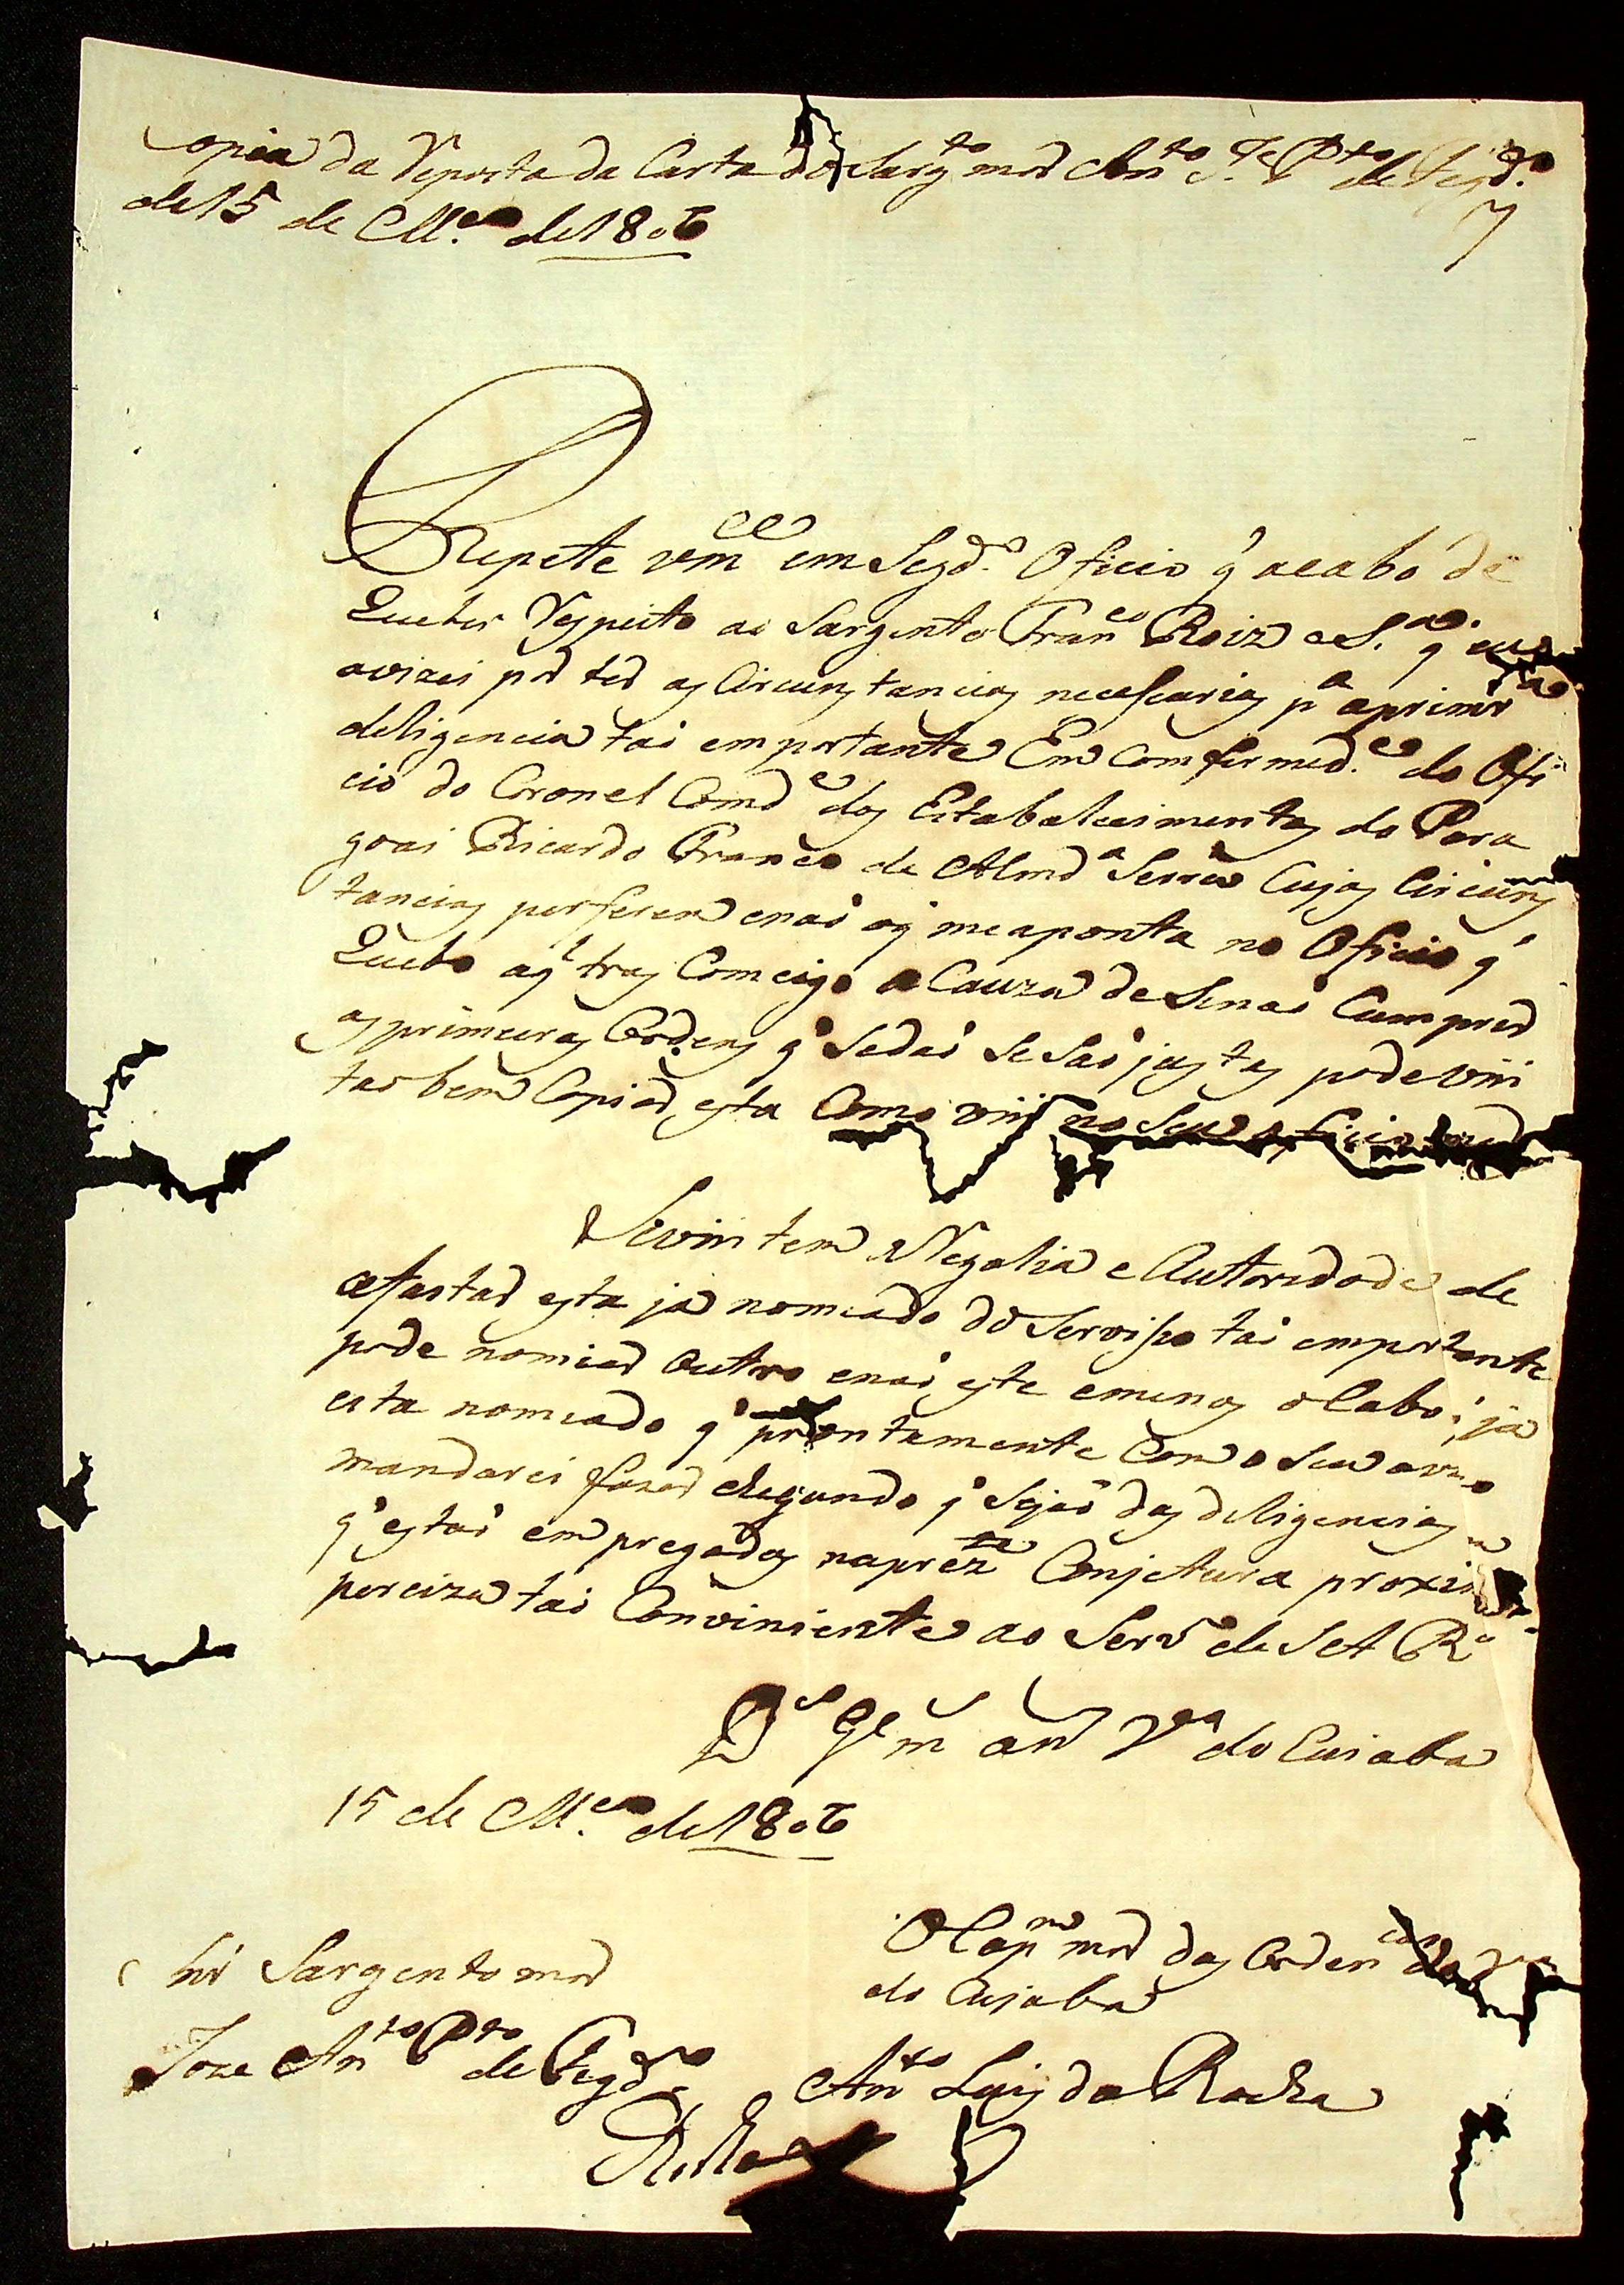 Copia da Reposta da Carta do Sargto mor Anto Je Pto de Fegdo
de 15 de M.ço de 1806
7
Repete vmce em Segdo Oficio q̃ acabo de
Receber Respeito ao Sargento Franco Roiz eS.a q̃ eu
avizei por ter as Circunstancias necessarias pa aprimra
deligencia tão emportante Em Comfermed.e do Ofi
cio do Coronel Comde dos Estabalecimentos do Para
goai Ricardo Franco de Almda Serra Cujas Circuns
tancias perferem enão os q̃ me aponta no Oficio q̃
Recebo aql tras Comcigo a Cauza de Senão Cumprir
as primeiras Ordens q̃ Sedão se São justas pode vm
tao bem Copiar esta Como vm no Seu oficio
Sevm tem Regalia e Autoridade de
afastar esta já nomeado do Serviso tão emportante
pode nomiar Outro enão este emenos o Cabo; já
esta nomeado q̃ prontamente Com o Seu avizo
mandarei fazer Segundo q̃ Sejão das deligencias
q̃ estão empregados naprezte Conjetura proxima
perciza tão Conviniente ao Servo de S A Rl
Ds Ge m ans Va do Cuiaba
15 de M.ço de 1806
Snr Sargento mor
Joze Anto Pto de Fegdo
O Capm mor das Ordencas
do Cuiaba
Anto Luis da Rocha